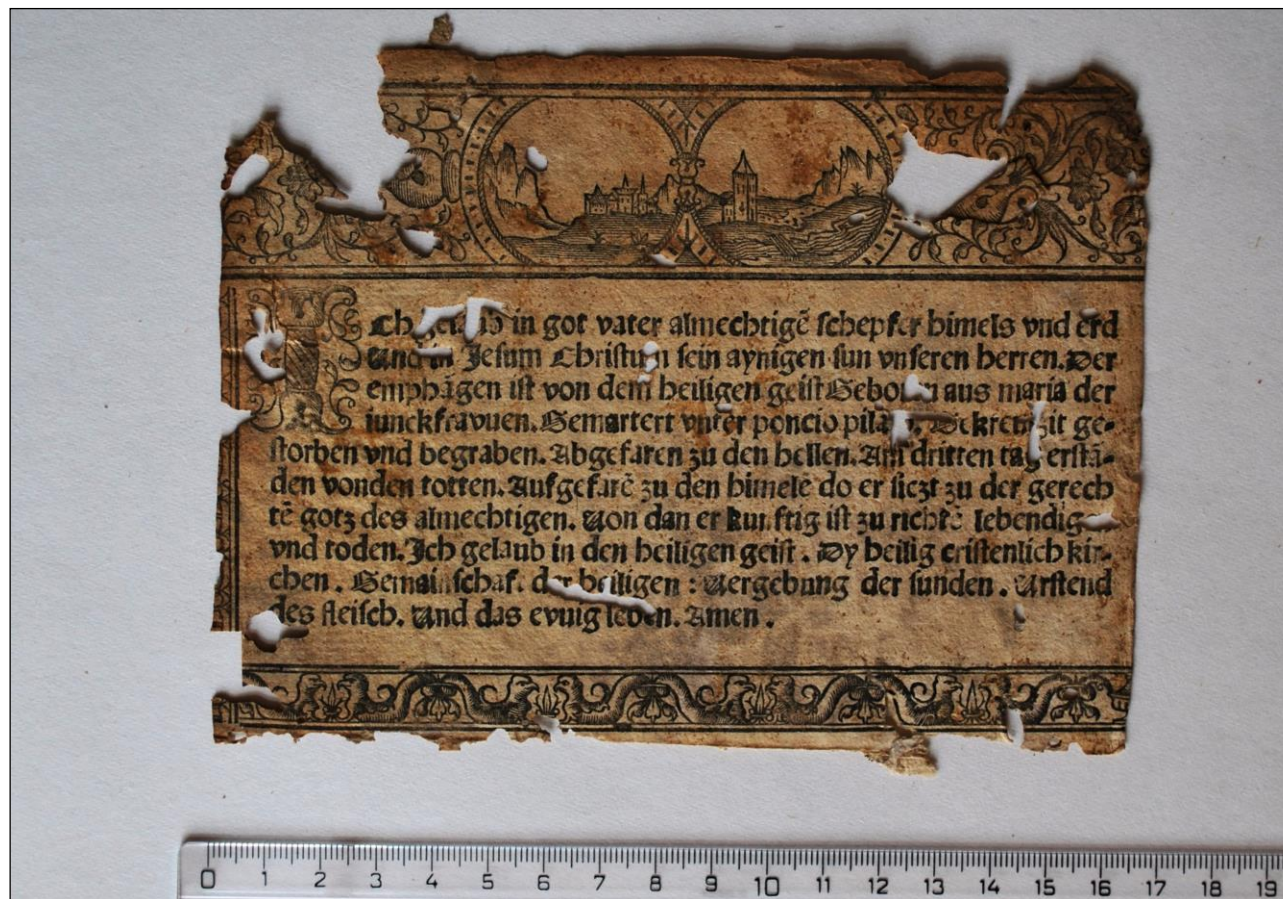 Ich in got vater almechtigē schepfer himels vnd erd
Und in Jesum Christum sein aynigen sun vnseren herren. Der
emphāgen ist von dem heiligen geist Geboren aus maria der
iunckfravuen. Gemartert vnter poncio pilato. ge-
storben vnd begraben. Abgefaren zu den hellen. Am dritten tag erstā-
den vonden totten. Aufgefarē zu den himelē do er siczt zu der gerech
tē gotz des almechtigen. Von dan er kunftig ist zu richtē lebendigen
vnd toden. Ich gelaub in den heiligen geist. Dy heilig cristenlich kir-
chen. Gemainschaft der heiligen: Vergebung der sunden. Urstend
des fleisch. Und das evuig leben. Amen.
0 1 2 3 4 5 6 7 8 9 10 11 12 13 14 15 16 17 18 19